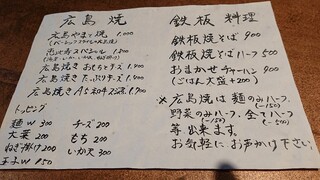 広島焼
広島やまと焼 1,000
スペシャル 1,500
広島焼き おもちとチーズ 1,400
広島焼き たっぷりチーズ 1,400
広島焼き
トッピング
麺W 300
大葉 200
ねぎ掛け 200
玉子W 150
チーズ 200
もち 200
いか天 300
鉄板料理
鉄板焼そば 900
鉄板焼そばハーフ 500
おまかせチャーハン 900
(ごはん大盛 +200)
※広島焼は麺のみハーフ(-150)、
野菜のみハーフ(-150)、全てハーフ(-500)
等出来ます。
お気軽に、お声がけ下さい。